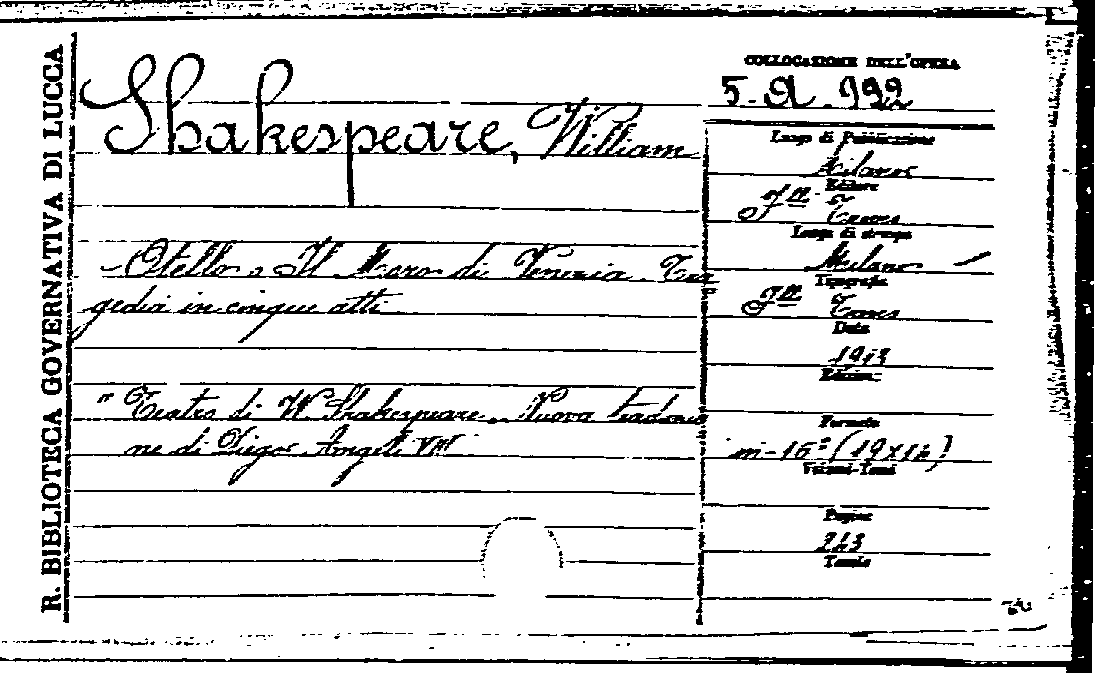 R. BIBLIOTECA GOVERNATIVA DI LUCCA
Shakespeare, William
- Otello o Il Moro di Venezia. Tra
gedia in cinque atti.
" Teatro di W. Shakespeare. Nuova traduzio
ne di Diego Angeli VIII
COLLOCAZIONE DELL'OPERA
5. A. 992
Luogo di Pubblicazione
Milano
Editore
F.lli Treves
Luogo di stampa
Milano
Tipografia
F.lli Treves
Data
1913
Edizione
Formato
in-16º (19x12)
Volumi-Tomi
Pagine
243
Tavole